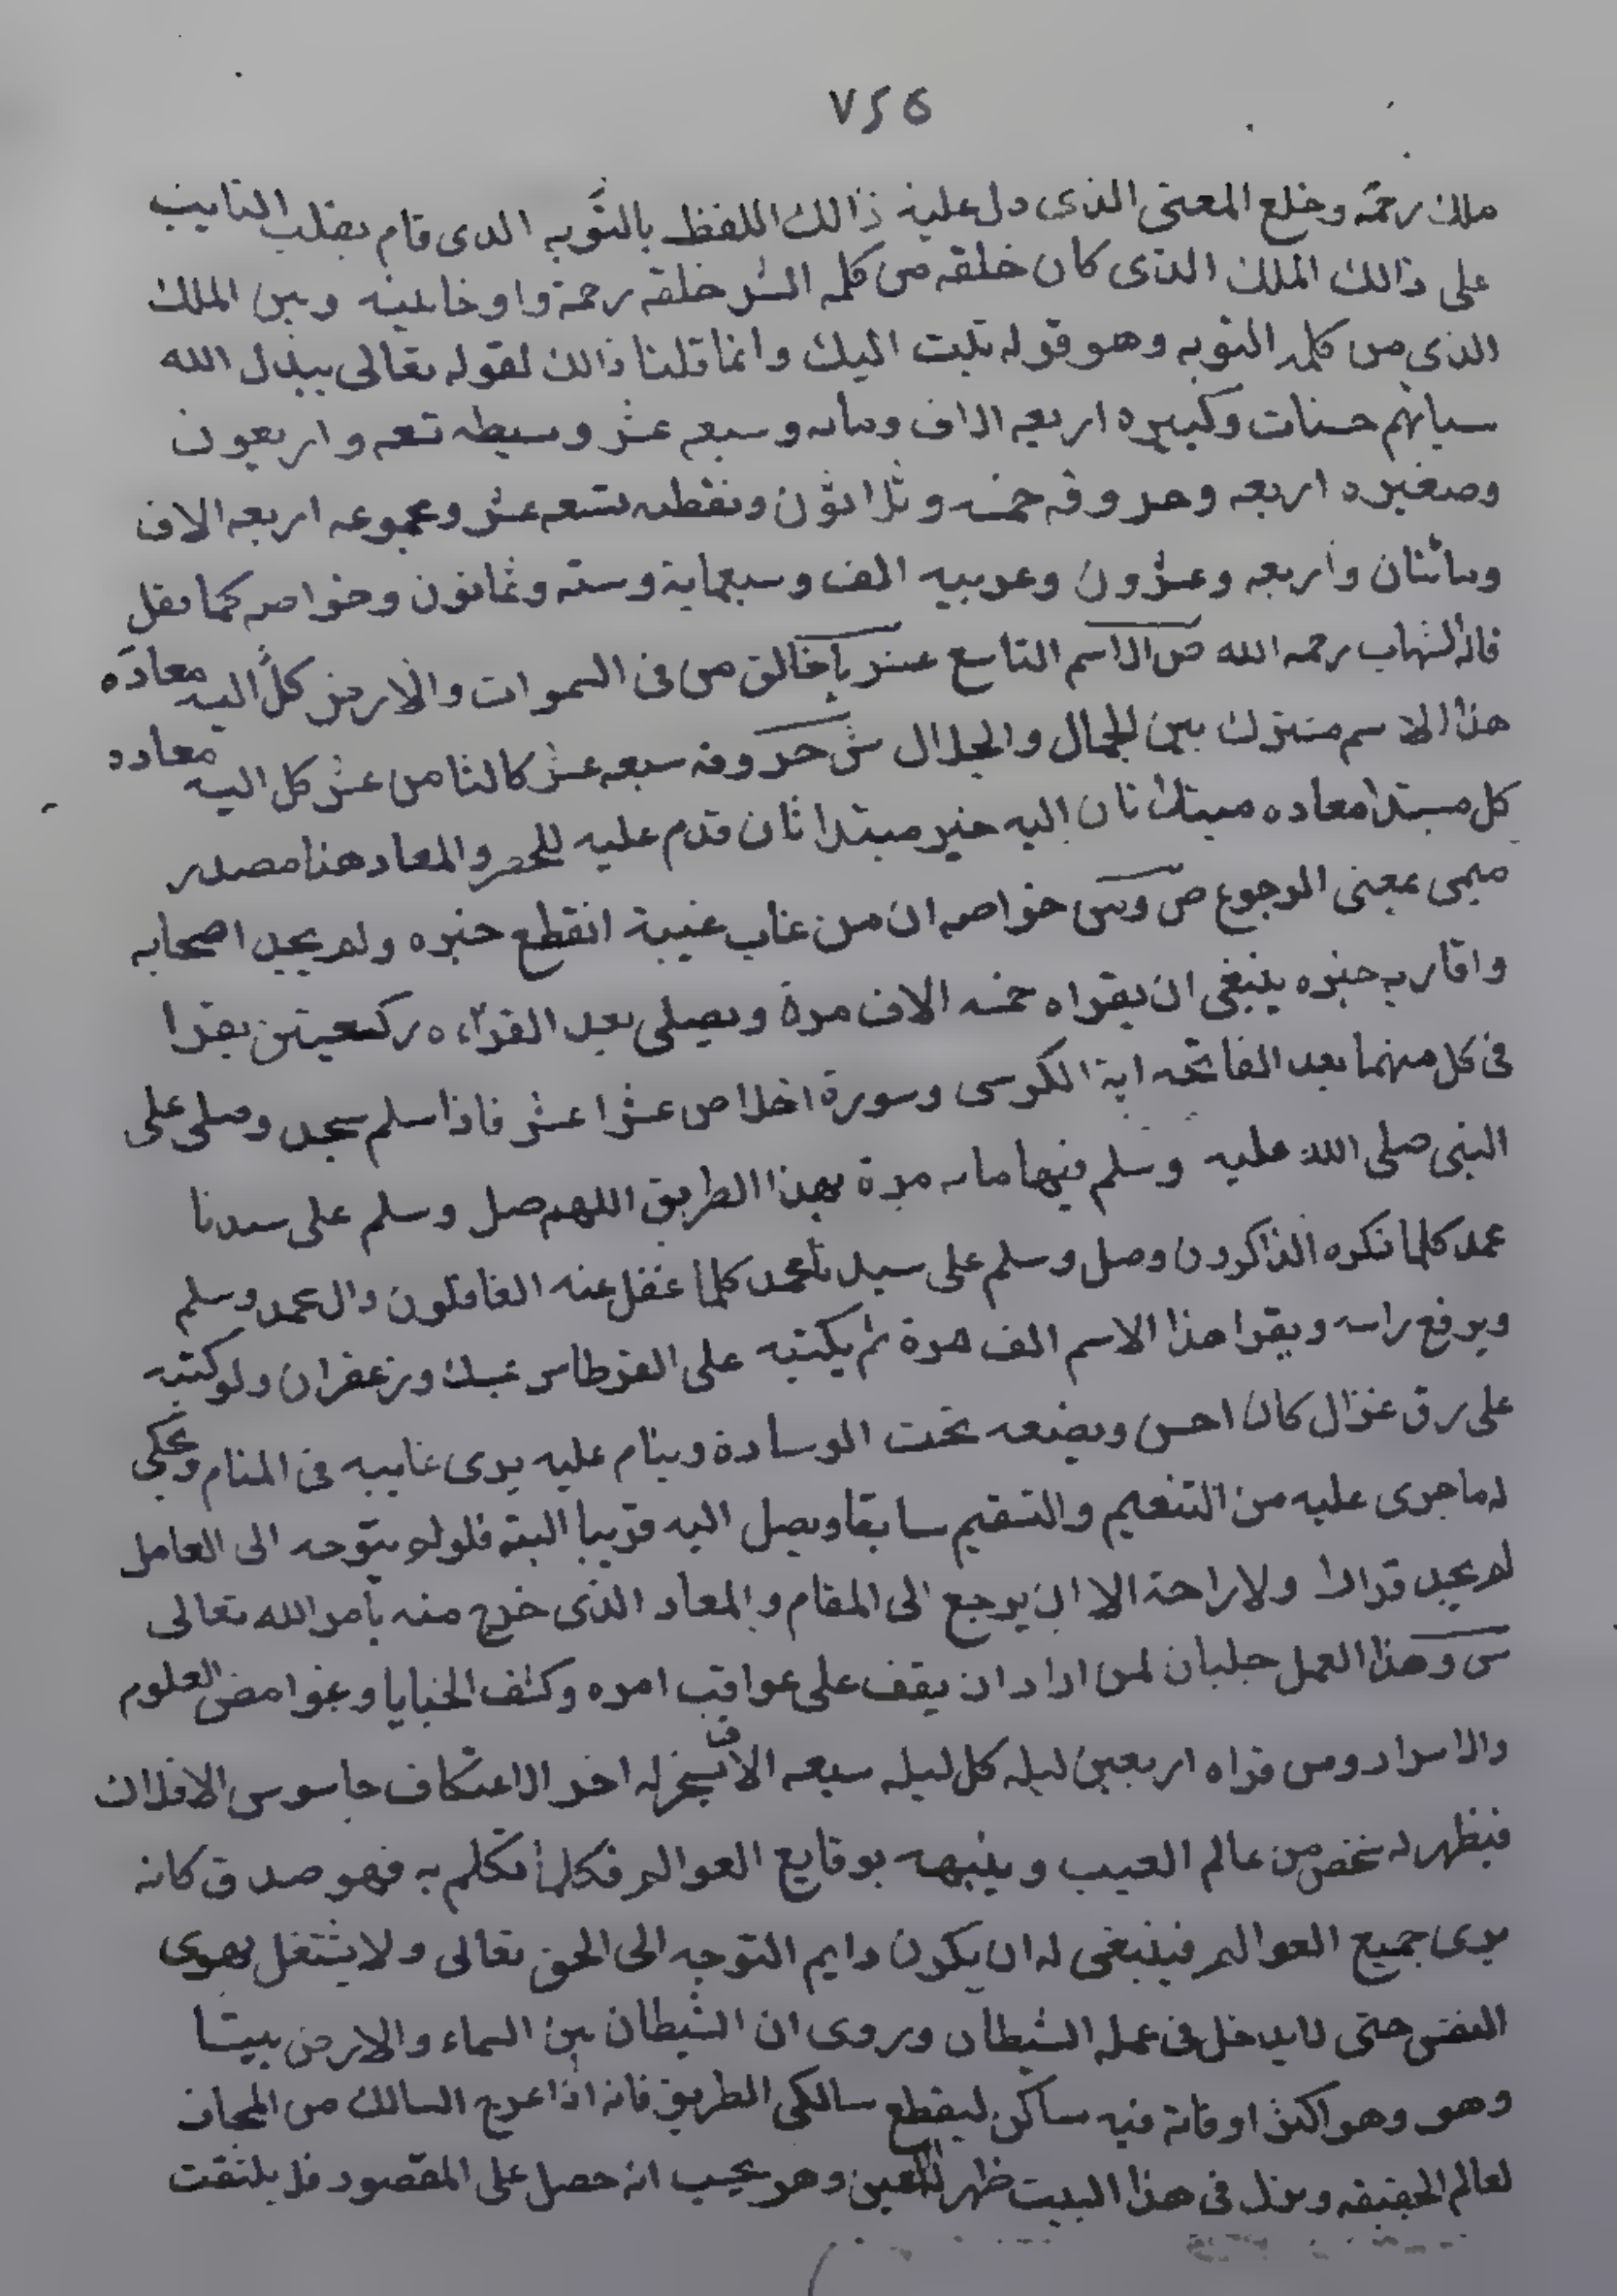 ٧٢٥
ملك رحمة وخلع المعنى الذى دل عليه ذالك اللفظ بالتوبه الدى قام بقلب التايب
على ذالك الملك الذى كان خلقه من كلمه الشر خلقه رحمة واوخابينه وبين الملك
الذى من كلمه التوبه وهو قوله تبت اليك وانما قلنا ذالك لقوله تعالى يبدل الله
سياتهم حسنات وكبيره اربعه الاف ومايه وسبعه عشر وسيطه تسعه واربعون
وصغيره اربعه وحروفه خمسه وثلاثون ونقطه تسعه عشر ومجموعه اربعه الاف
ومائتان واربعه وعشرون وعربيه الف وسبعماية وسته وثمانون وخواصه كما نقل
قال الشهاب رحمه الله ص الاسم التاسع عشر يا خالق من فى السموات والارض كل اليه معاده
هذا الاسم مشترك بين الجمال والجلال ش حروفه سبعه عشر كالثامن عشر كل اليه معاده
كل مبتدا معاده مبتدا ثان اليه خبر مبتدا ثان قدم عليه للحصر والمعاد هنا مصدر
ميمى بمعنى الرجوع ص ومن خواصه ان من غاب غيبة انقطع خبره ولم يجد اصحابه
واقاربه خبره ينبغى ان يقراه خمسه الاف مرة ويصلى بعد القراءه ركعتين يقرا
فى كل منهما بعد الفاتحه اية الكرسى وسورة اخلاص عشرا عشر فاذا سلم سجد وصلى على
النبى صلى الله عليه وسلم فيها مايه مرة بهذا الطريق اللهم صل وسلم على سيدنا
محمد كلما ذكره الذاكرون وصل وسلم على سيدنا محمد كلما غفل عنه الغافلون وال محمد وسلم
ويرفع راسه ويقرا هذا الاسم الف مرة ثم يكتبه على القرطاس بمسك وزعفران ولو كتبه
على رق غزال كان احسن ويضعه تحت الوسادة وينام عليه يرى غايبه فى المنام ويحكى
له ما جرى عليه من التنعيم والتسقيم سابقا ويصل اليه قريبا البته فلو لم يتوجه الى العامل
لم يجد قرارا ولا راحة الا ان يرجع الى المقام والمعاد الذى خرج منه بامر الله تعالى
ش وهذا العمل جلبان لمن اراد ان يقف على عواقب امره وكشف الخبايا وغوامض العلوم
والاسرار ومن قراه اربعين ليله كل ليله سبعه الاف يسخر له اخر الاعتكاف جاسوس الافلاك
فيظهر له شخص من عالم الغيب وينبهه بوقايع العوالم فكلما تكلم به فهو صدق كانه
يرى جميع العوالم فينبغى له ان يكون دايم التوجه الى الحق تعالى ولا يشتغل بهوى
النفس حتى لا يدخل فى عمله الشيطان وروى ان الشيطان بين السماء والارض بيتا
وهو وهو اكثر اوقاته فيه ساكن ليقطع سالكى الطريق فانه اذا عرج السالك من المجاز
لعالم الحقيقه ونزل فى هذا البيت ظهر له العين وهو يحسب انه حصل على المقصود فلا يلتفت